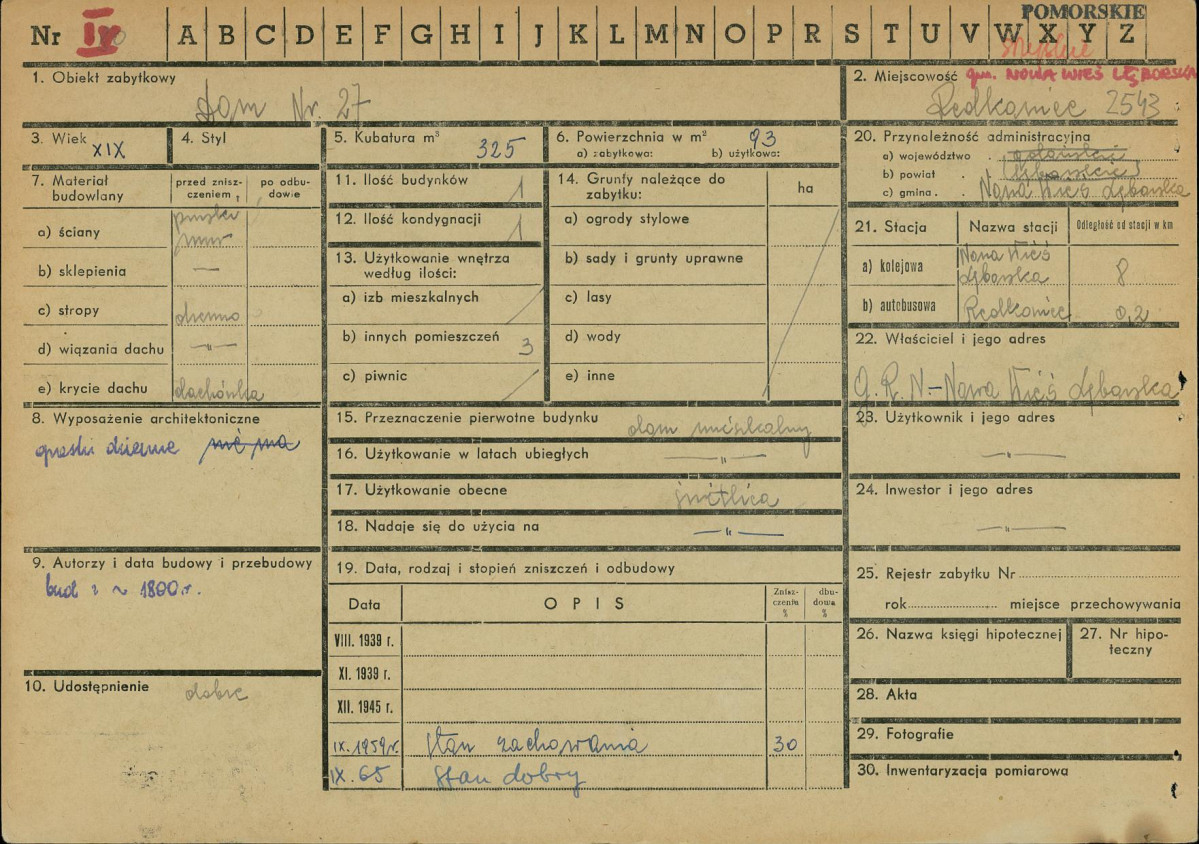 POMORSKIE
Nr IV A B C D E F G H I J K L M N O P R S T U V W X Y Z
1. Obiekt zabytkowy
Dom Nr. 27
2. Miejscowość gm. NOWA WIEŚ LĘBORSKA
Redkowiec 2543
3. Wiek XIX
4. Styl
5. Kubatura m³
325
6. Powierzchnia w m² 93
a) zabytkowa: b) użytkowa:
20. Przynależność administracyjna
a) województwo gdańskie
b) powiat
c) gmina Nowa Wieś Lęborska
7. Materiał budowlany
przed zniszczeniem
po odbudowie
a) ściany
pruski
mur
b) sklepienia —
c) stropy drewno
d) wiązania dachu —"—
e) krycie dachu dachówka
11. Ilość budynków 1
12. Ilość kondygnacji 1
13. Użytkowanie wnętrza
według ilości:
a) izb mieszkalnych
b) innych pomieszczeń 3
c) piwnic
14. Grunty należące do
zabytku:
ha
a) ogrody stylowe
b) sady i grunty uprawne
c) lasy
d) wody
e) inne
21. Stacja Nazwa stacji Odległość od stacji w km
a) kolejowa Nowa Wieś
Lęborska 8
b) autobusowa Redkowiec 0,2
22. Właściciel i jego adres
G.R.N – Nowa Wieś Lęborska
8. Wyposażenie architektoniczne
nie ma
15. Przeznaczenie pierwotne budynku dom mieszkalny
16. Użytkowanie w latach ubiegłych —"—
17. Użytkowanie obecne świetlica
18. Nadaje się do użycia na —"—
23. Użytkownik i jego adres
—"—
24. Inwestor i jego adres
—"—
9. Autorzy i data budowy i przebudowy
bud ? ~ 1800 r.
10. Udostępnienie dobre
19. Data, rodzaj i stopień zniszczeń i odbudowy
Data OPIS Zniszczenia % dbudowa %
VIII. 1939 r.
XI. 1939 r.
XII. 1945 r.
IX. 1959 r. Stan zachowania 30
IX. 65 Stan dobry
25. Rejestr zabytku Nr
rok miejsce przechowywania
26. Nazwa księgi hipotecznej
27. Nr hipoteczny
28. Akta
29. Fotografie
30. Inwentaryzacja pomiarowa